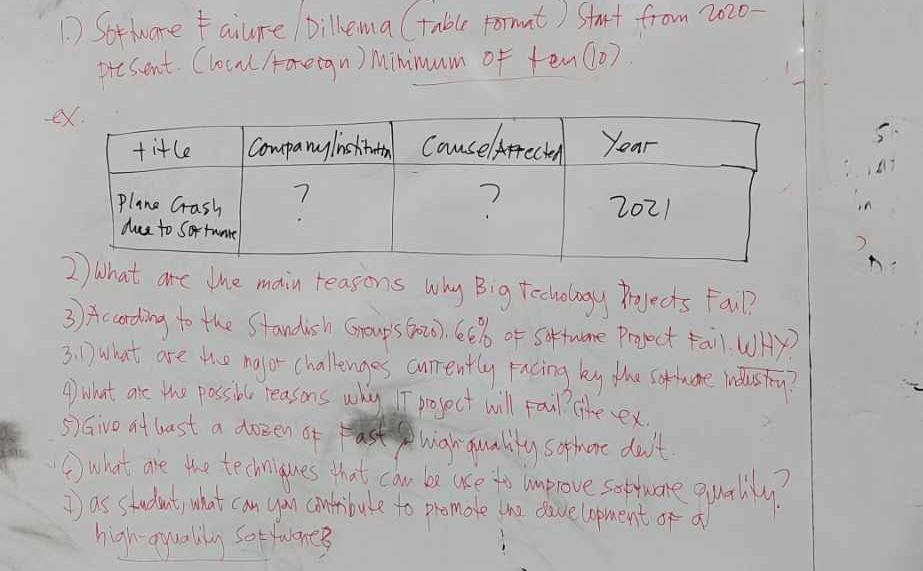 1.) Software Failure/Dillema (Table Format) Start from 2020-
present. (local/Foreign) Minimum of ten (10).
ex.
title Company/institution Cause/Affected Year
Plane Crash ? ? 2021
due to Software
2) What are the main reasons why Big Techology Projects Fail?
3) According to the Standish Group's (2020). 66% of Software Project Fail. WHY?
3.1) What are the major challenges currently facing by the software industry?
4) what are the possible reasons why IT project will Fail? Cite ex.
5) Give at least a dozen of Fast & high-quality software dev't.
6) what are the techniques that can be use to improve software quality?
7) as student, what can you contribute to promote the development of a
high-quality software?